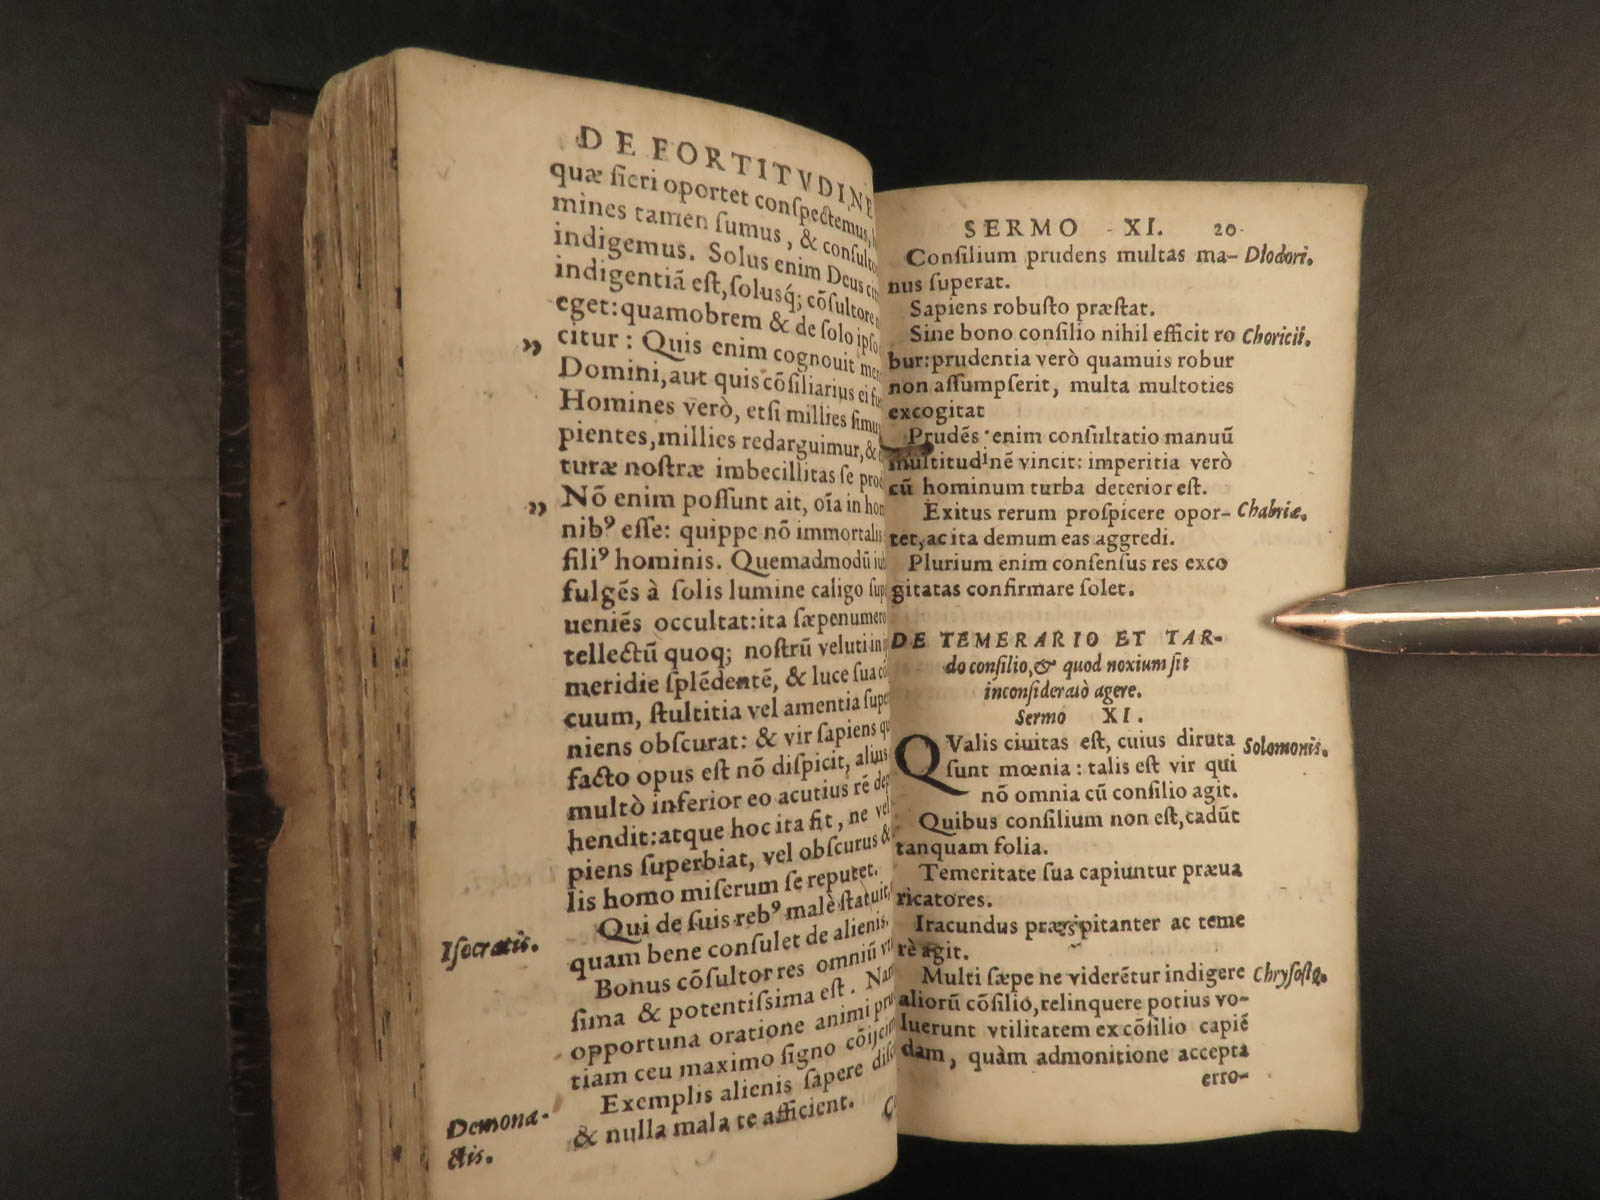 DE FORTITVDINE
quæ fieri oportet conſpectemus,
mines tamen ſumus, & conſulto
indigemus. Solus enim Deus
indigentiâ eſt, ſolusq́; cõſultore
eget: quamobrem & de ſolo ipſo
„ citur: Quis enim cognouit
Domini, aut quis cõſiliarius ei
Homines verò, etſi millies ſimus
pientes, millies redarguimur, &
turæ noſtræ imbecillitas ſe
„ Nõ enim poſſunt ait, oĩa in
nibꝰ eſſe: quippe nõ immortalis
filiꝰ hominis. Quemadmodũ
fulgẽs à ſolis lumine caligo
ueniẽs occultat: ita ſæpenumero
tellectũ quoq; noſtrũ veluti in
meridie ſplẽdentẽ, & luce ſua
cuum, ſtultitia vel amentia
niens obſcurat: & vir ſapiens
facto opus eſt nõ diſpicit, alius
multò inferior eo acutius rẽ
hendit: atque hoc ita fit, ne vel
piens ſuperbiat, vel obſcurus &
lis homo miſerum ſe reputet.
Qui de ſuis rebꝰ malè ſtatuit,
Iſocratis. quam bene conſulet de alienis.
Bonus cõſultor res omniũ
ſima & potentiſsima eſt. Nam
opportuna oratione animi
tiam ceu maximo ſigno
Exemplis alienis ſapere
Demona-
ctis. & nulla mala te afficient.
SERMO XI. 20
Conſilium prudens multas ma- Diodori.
nus ſuperat.
Sapiens robuſto præſtat.
Sine bono conſilio nihil efficit ro Choricii.
bur: prudentia verò quamuis robur
non aſſumpſerit, multa multoties
excogitat
Prudẽs enim conſultatio manuũ
multitudinẽ vincit: imperitia verò
cũ hominum turba deterior eſt.
Exitus rerum proſpicere opor- Chabriæ.
tet, ac ita demum eas aggredi.
Plurium enim conſenſus res exco
gitatas confirmare ſolet.
DE TEMERARIO ET TAR-
do conſilio, & quod noxium ſit
inconſideratò agere.
Sermo XI.
QValis ciuitas eſt, cuius diruta Solomonis.
ſunt mœnia: talis eſt vir qui
nõ omnia cũ conſilio agit.
Quibus conſilium non eſt, cadũt
tanquam folia.
Temeritate ſua capiuntur præua
ricatores.
Iracundus præcipitanter ac teme
rè agit.
Multi ſæpe ne viderẽtur indigere Chryſoſto.
aliorũ cõſilio, relinquere potius vo-
luerunt vtilitatem ex cõſilio capiẽ
dam, quàm admonitione accepta
erro-